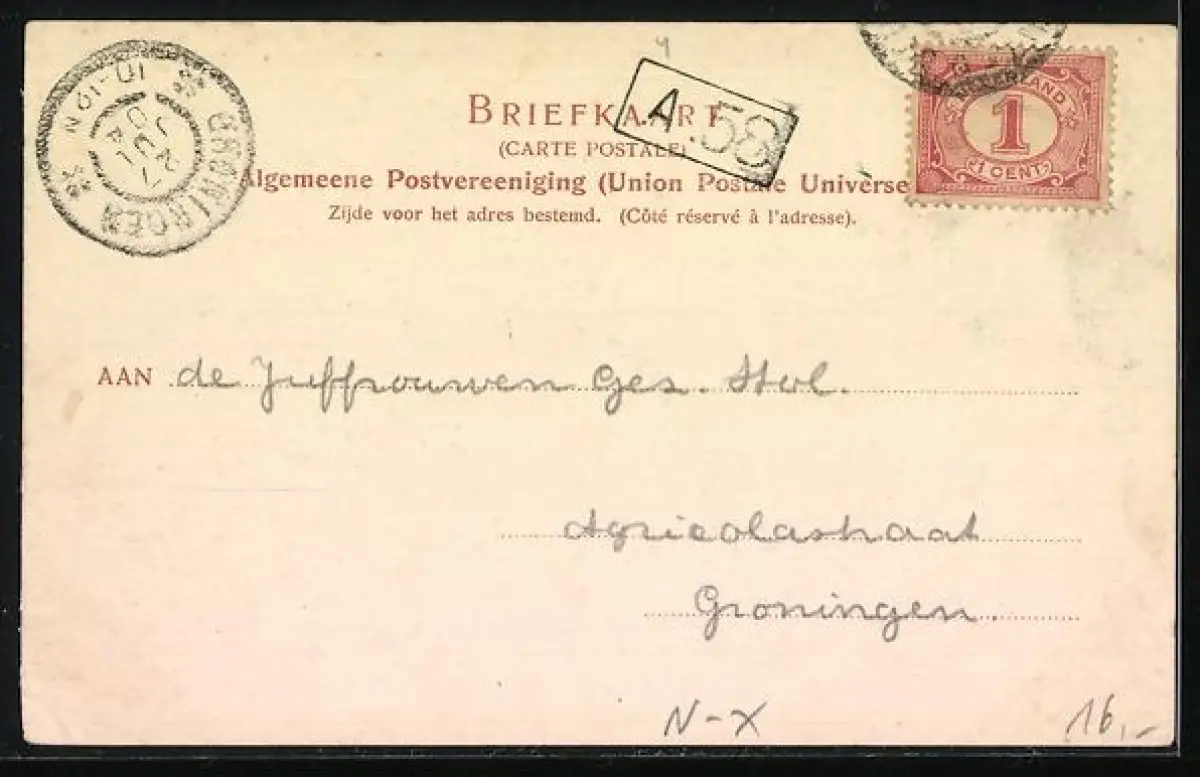 BRIEFKAART
A.58
(CARTE POSTALE)
Algemeene Postvereeniging (Union Postale Universe
Zijde voor het adres bestemd. (Côté réservé à l'adresse).
GRONINGEN
10-12 N
27
JUL
NEDERLAND
1
1 CENT
AAN de Juffrouwen Ges. Hol.
Agricolastraat
Groningen.
N-X
16,-